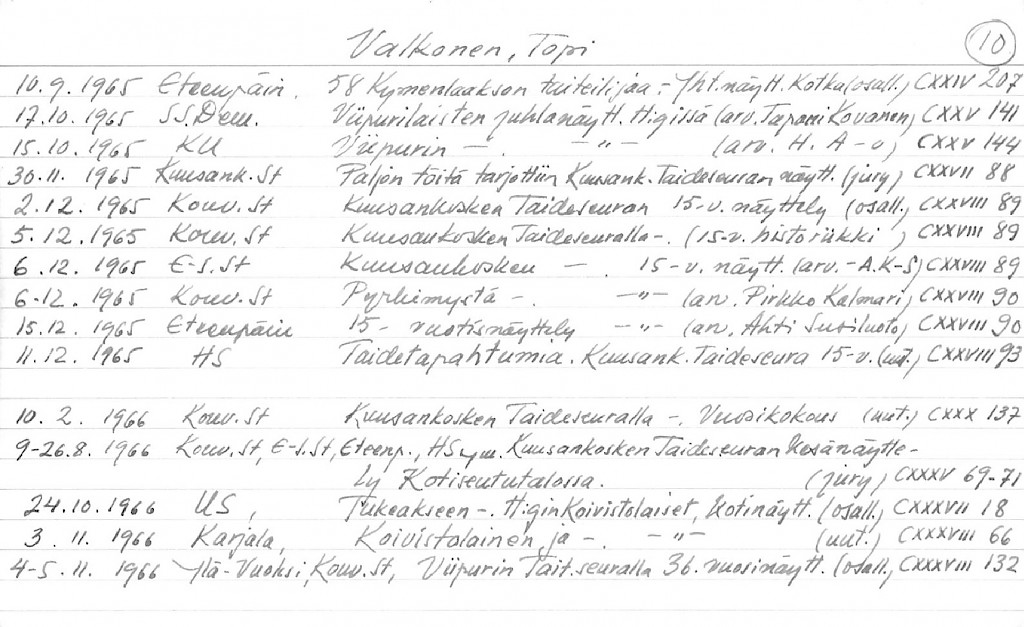 Valkonen, Topi 10
10.9.1965 Eteenpäin. 58 Kymenlaakson taiteilijaa - Yht.näytt. Kotka (osall.) CXXIV 207
17.10.1965 SS.Dem. Viipurilaisten juhlanäytt. H:gissä (arv. Tapani Kovanen) CXXV 141
15.10.1965 KU Viipurin — . — " — (arv. H. A-o) CXXV 144
30.11.1965 Kuusank.St Paljon töitä tarjottiin Kuusank.Taideseuran näytt. (jury) CXXVII 88
2.12.1965 Kouv.St Kuusankosken Taideseuran 15-v. näyttely (osall.) CXXVIII 89
5.12.1965 Kouv.St Kuusankosken Taideseuralla -. (15-v. historiikki ) CXXVIII 89
6.12.1965 E-S.St Kuusankosken — . 15-v. näytt. (arv. - A.K-S) CXXVIII 89
6-12.1965 Kouv.St Pyrkimystä -. —"— (arv. Pirkko Kalmari) CXXVIII 90
15.12.1965 Eteenpäin 15- vuotisnäyttely —"— (arv. Ahti Susiluoto) CXXVIII 90
11.12.1965 HS Taidetapahtumia. Kuusank.Taideseura 15-v. (uut.) CXXVIII 93
10.2.1966 Kouv.St Kuusankosken Taideseuralla -. Vuosikokous (uut.) CXXX 137
9-26.8.1966 Kouv.St, E-S.St, Eteenp., HS ym. Kuusankosken Taideseuran Kesänäytte-
ly Kotiseututalossa. (jury) CXXXV 69-71
24.10.1966 US, Tukeakseen -. H:gin Koivistolaiset, Kotinäytt. (osall.) CXXXVII 18
3.11.1966 Karjala, Koivistolainen ja -. —"— (uut.) CXXXVIII 66
4-5.11.1966 Ylä-Vuoksi, Kouv.St, Viipurin Tait.seuralla 36. vuosinäytt. (osall.) CXXXVIII 132